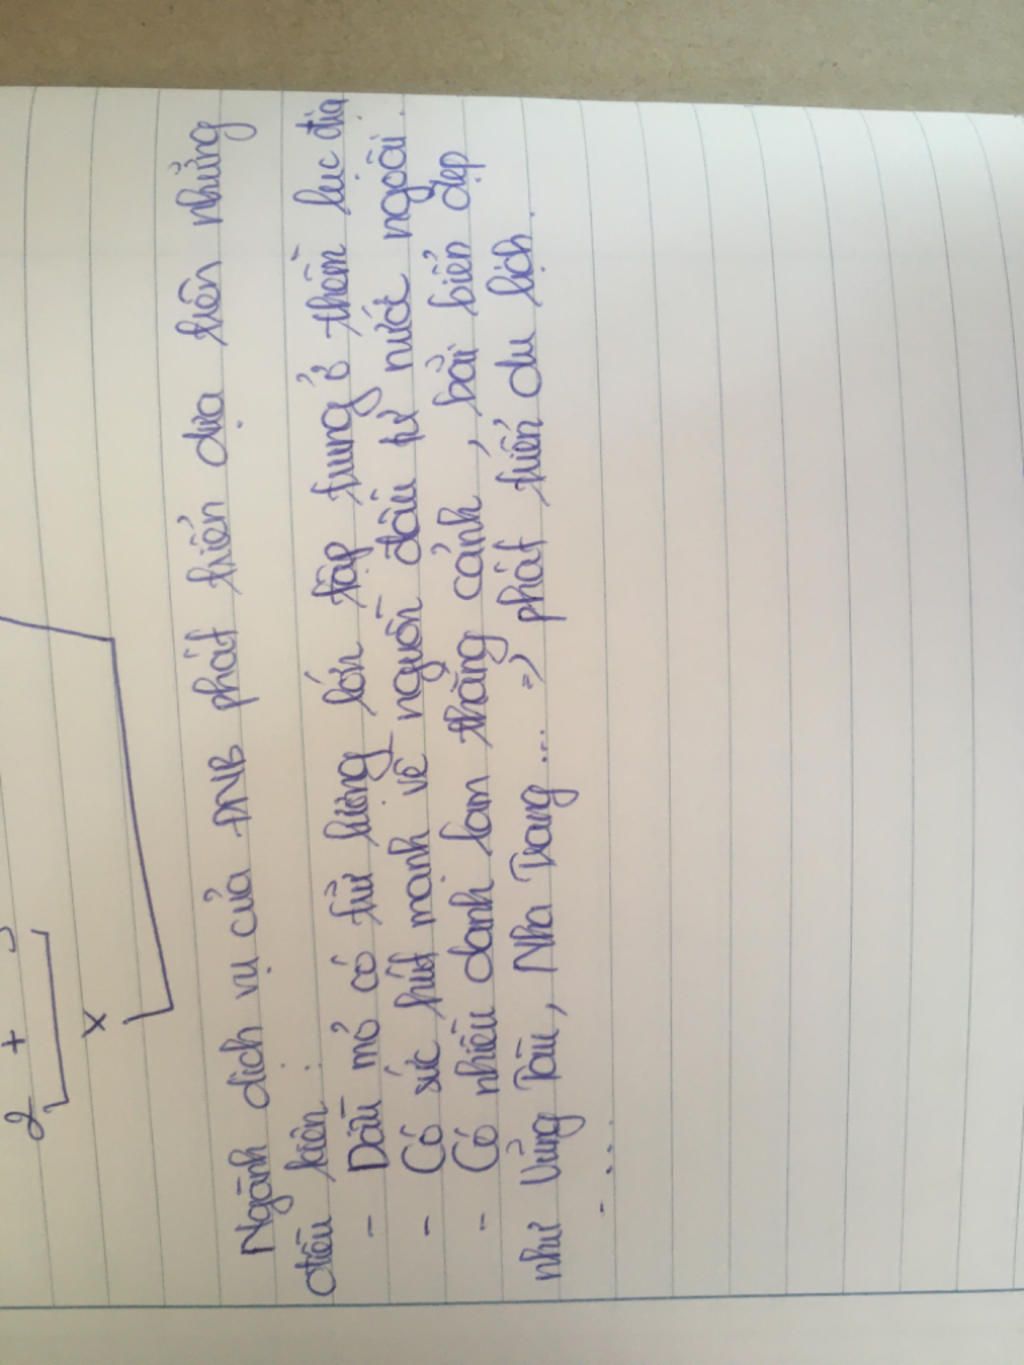 2 + 3
x
Ngành dịch vụ của ĐNB phát triển dựa trên những
điều kiện :
- Dầu mỏ có trữ lượng lớn tập trung ở thềm lục địa
- Có sức hút mạnh về nguồn đầu tư nước ngoài.
- Có nhiều danh lam thắng cảnh, bãi biển đẹp
như Vũng Tàu, Nha Trang ... => phát triển du lịch.
- ...